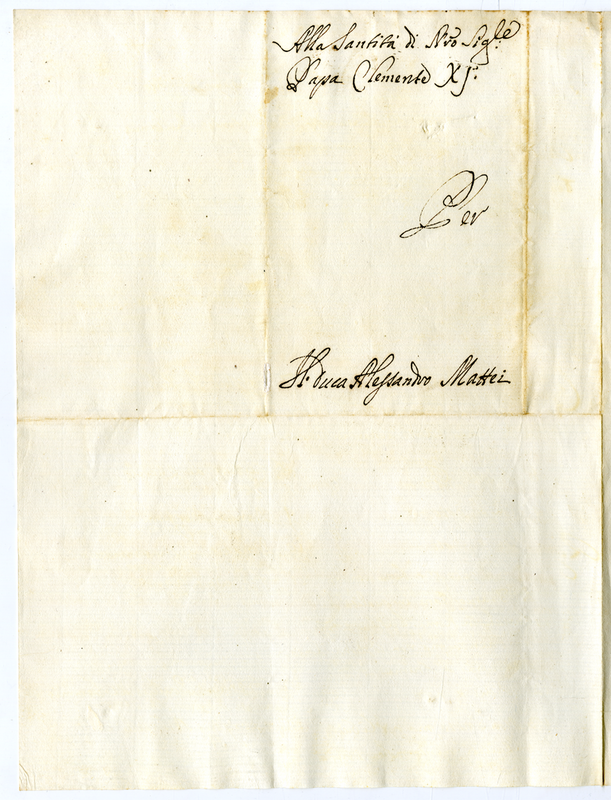 Alla Santità di Nrõ Sig.re
Papa Clemente XI.
Per
Il Duca Alessandro Mattei